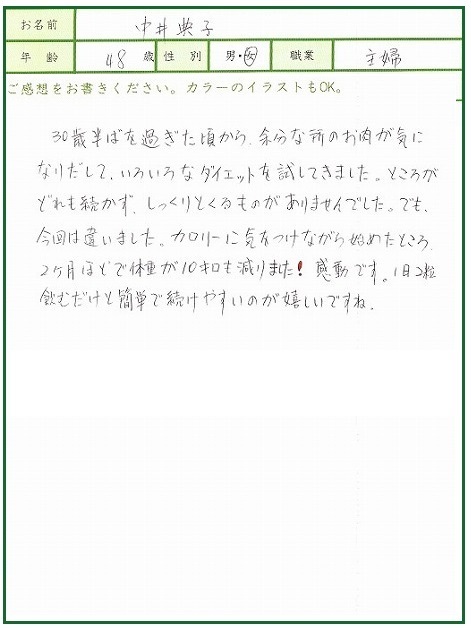 お名前 中井典子
年 齢 48 歳 性 別 男・女 職業 主婦
ご感想をお書きください。カラーのイラストもOK。
30歳半ばを過ぎた頃から、余分な所のお肉が気に
なりだして、いろいろなダイエットを試してきました。ところが
どれも続かず、しっくりとくるものがありませんでした。でも、
今回は違いました。カロリーに気をつけながら始めたところ、
2ヶ月ほどで体重が10キロも減りました！感動です。1日2粒
飲むだけと簡単で続けやすいのが嬉しいですね。